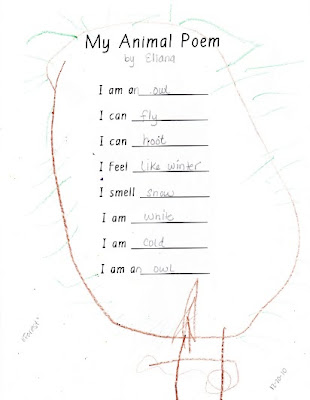 My Animal Poem
by Ellana
I am an owl
I can fly
I can hoot
I feel like winter
I smell snow
I am white
I am cold
I am an owl